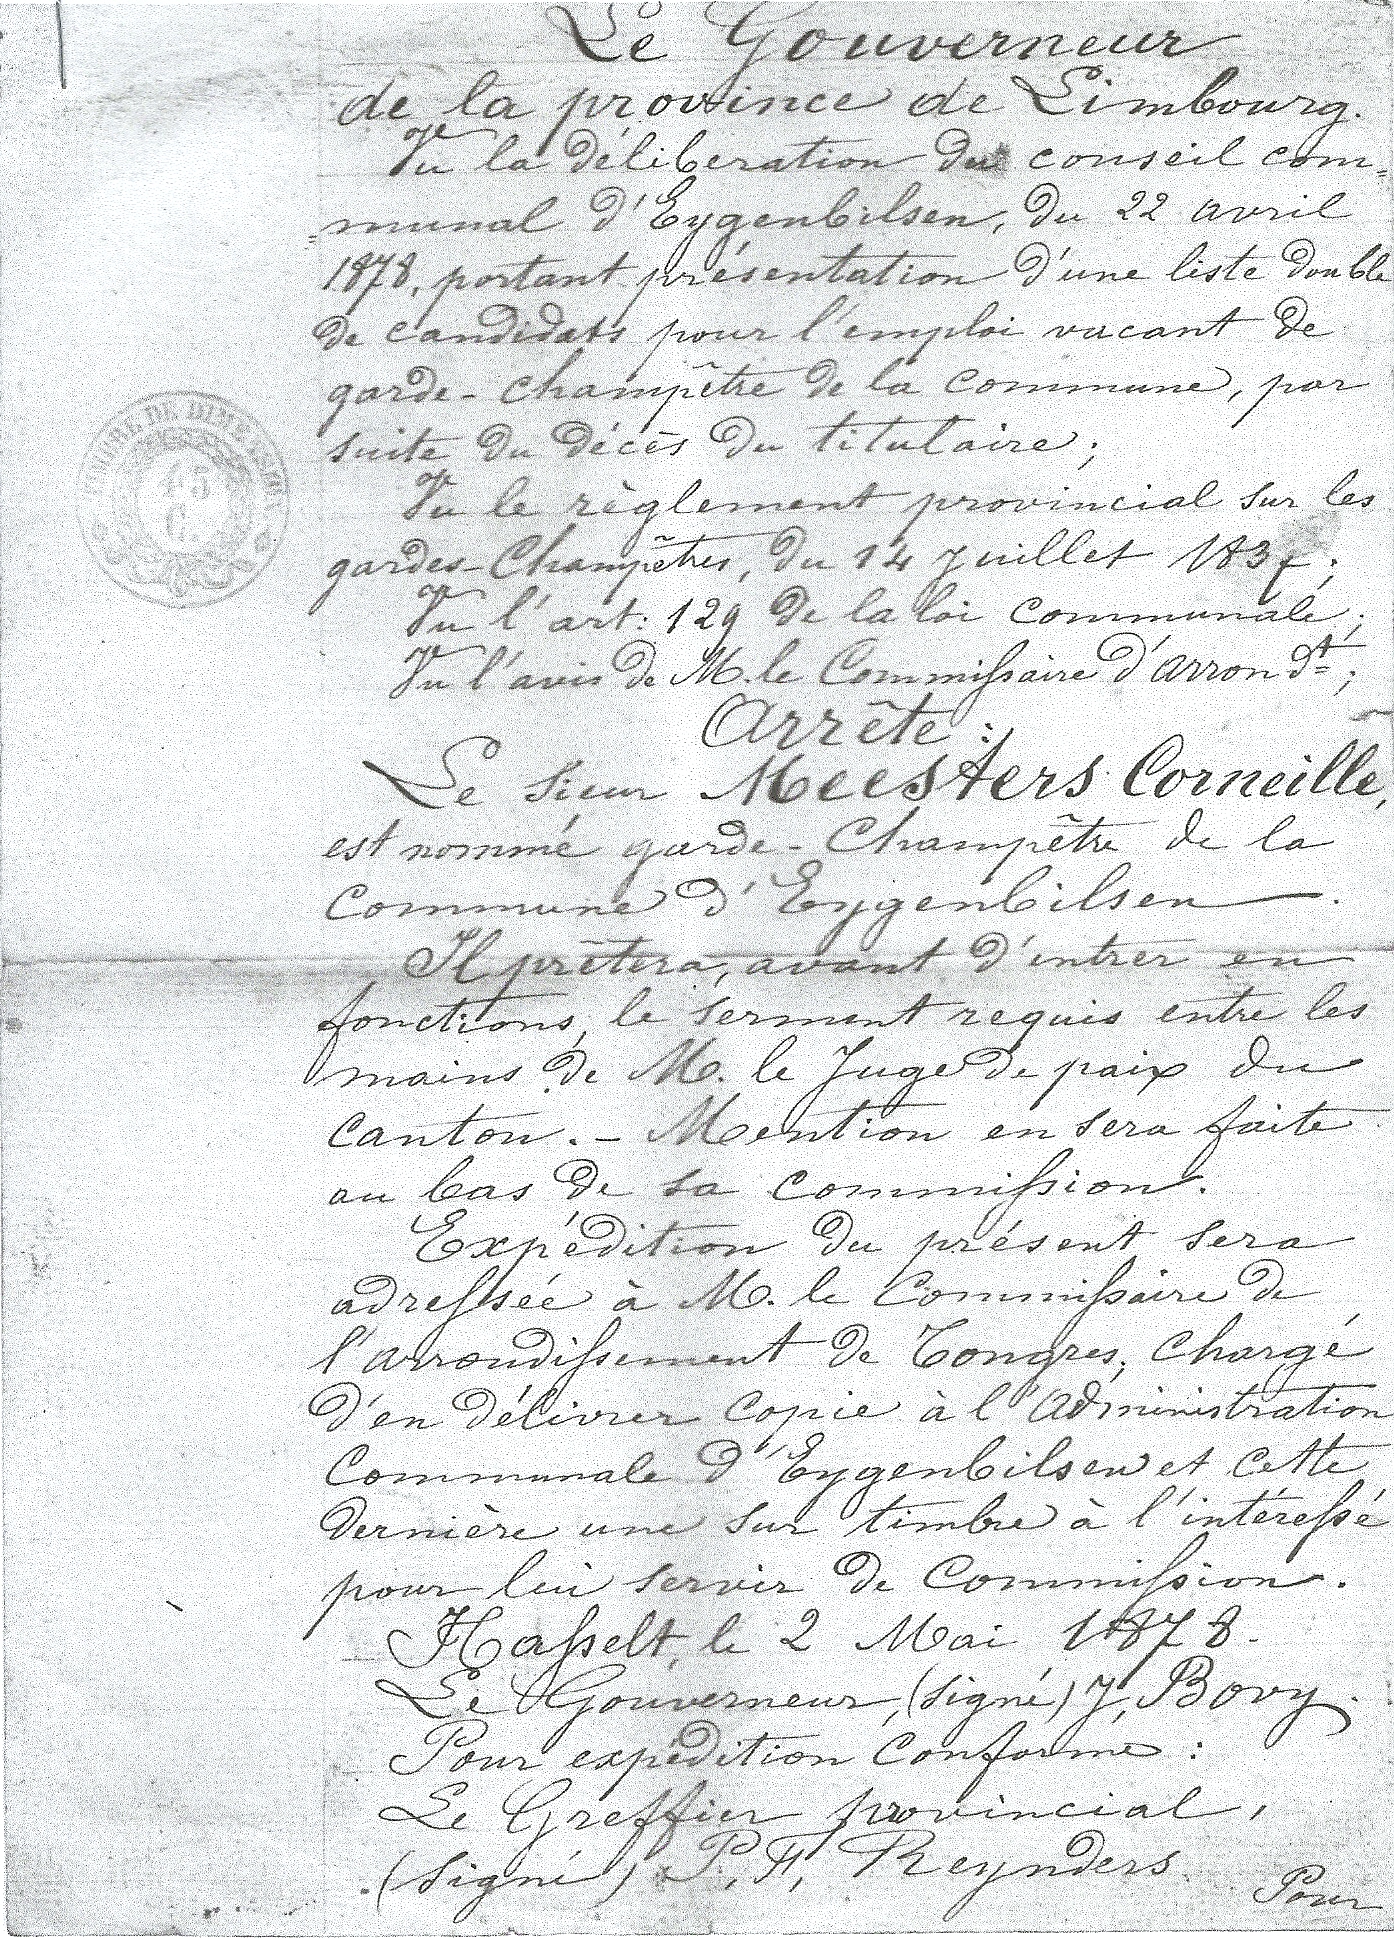 Le Gouverneur
de la province de Limbourg.
Vu la délibération du conseil com=
=munal d'Eygenbilsen, du 22 avril
1878, portant présentation d'une liste double
de candidats pour l'emploi vacant de
garde-champêtre de la commune, par
suite du décès du titulaire;
Vu le règlement provincial sur les
gardes-Champêtres, du 14 Juillet 1837;
Vu l'art: 129 de la loi communale;
Vu l'avis de M. le Commissaire d'arrondt;
Arrête:
Le Sieur Meesters Corneille,
est nommé garde-Champêtre de la
Commune d'Eygenbilsen.
Il prêtera, avant d'entrer en
fonctions, le serment requis entre les
mains de M. le Juge de paix du
Canton. - Mention en sera faite
au bas de sa commission.
Expédition du présent sera
adressée à M. le Commissaire de
l'arrondissement de Tongres, chargé
d'en délivrer copie à l'administration
Communale d'Eygenbilsen et cette
dernière une sur timbre à l'intéressé
pour lui servir de Commission.
Hasselt, le 2 Mai 1878.
Le Gouverneur, (signé) J, Bovy.
Pour expédition Conforme:
Le Greffier provincial,
(signé) P. F, Reynders
Pour
TIMBRE DE DIMENSION
45
C.